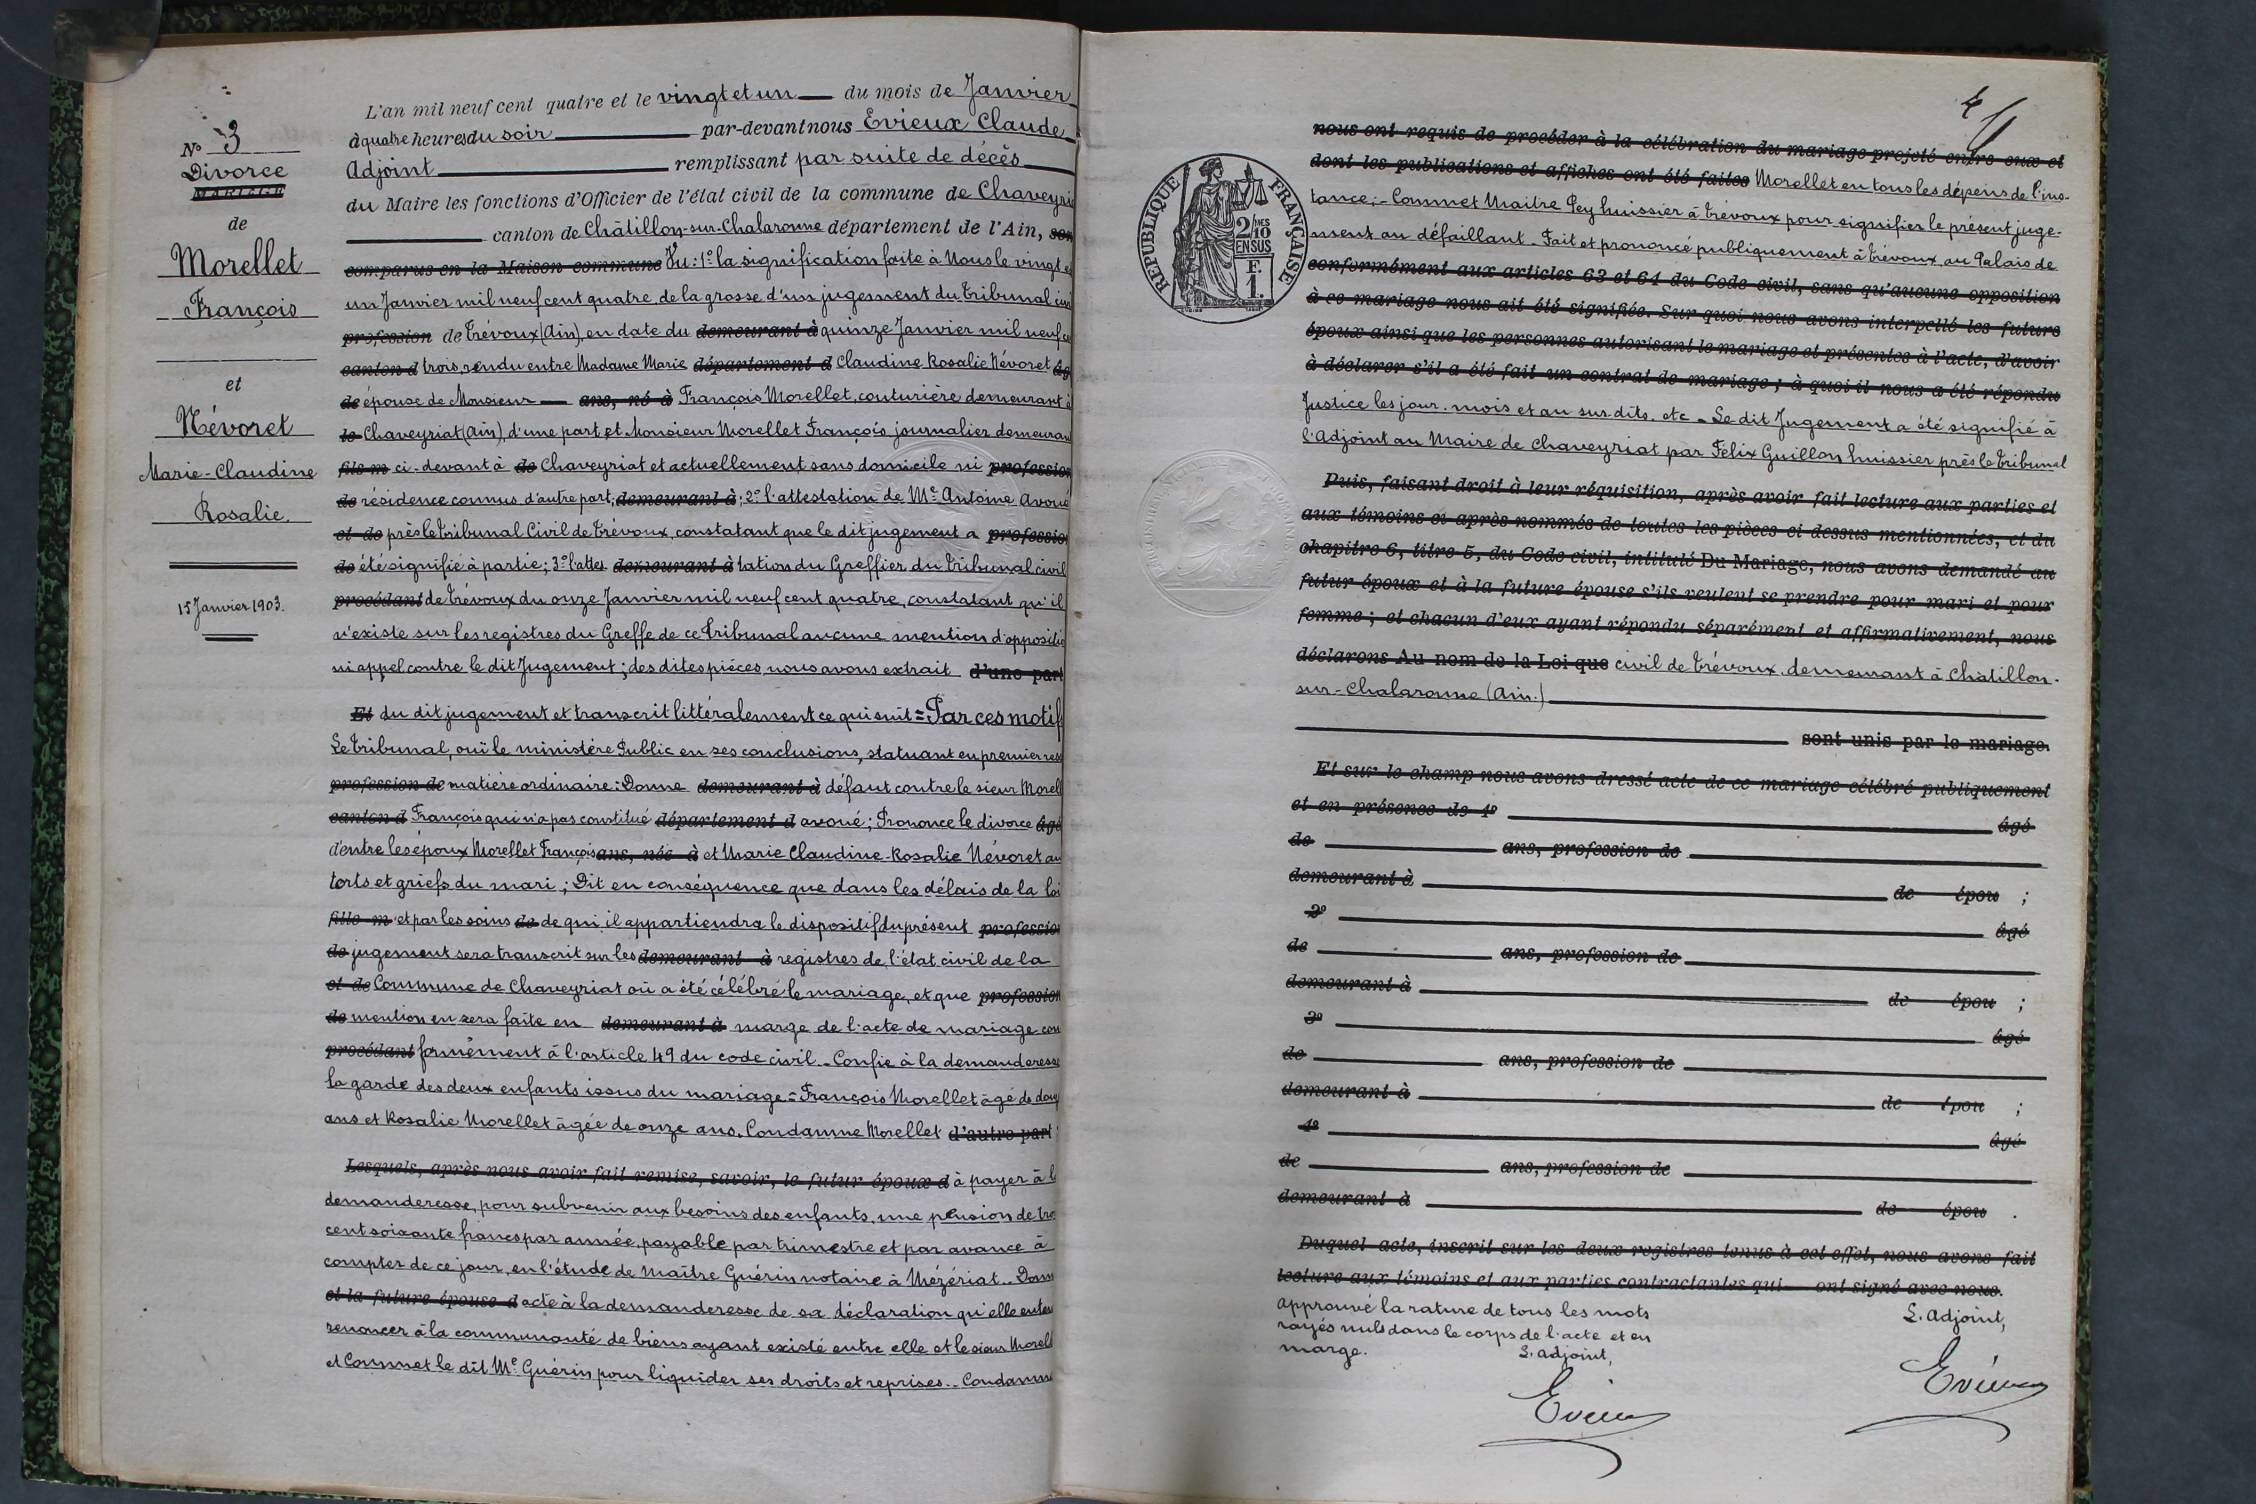 N° 3
Divorce
MARIAGE
de
Morellet
François
et
Névoret
Marie-Claudine
Rosalie.
15 Janvier 1903.
L'an mil neuf cent quatre et le vingt et un du mois de Janvier
à quatre heures du soir par-devant nous Evieux Claude
Adjoint remplissant par suite de décès
du Maire les fonctions d'Officier de l'état civil de la commune de Chaveyri
canton de Châtillon-sur-Chalaronne département de l'Ain, son
comparus en la Maison commune Vu: 1° la signification faite à Nous le vingt e
un Janvier mil neuf cent quatre de la grosse d'un jugement du Tribunal civi
profession de Trévoux (Ain), en date du demeurant à quinze Janvier mil neuf ce
canton d trois, rendu entre Madame Marie département d Claudine Rosalie Névoret âg
de épouse de Monsieur ans, né à François Morellet, couturière demeurant à
le Chaveyriat (Ain), d'une part et Monsieur Morellet François journalier demeuran
fils m ci-devant à de Chaveyriat et actuellement sans domicile ni profession
de résidence connus, d'autre part; demeurant à; 2° l'attestation de Me Antoine Avoué
et de près le Tribunal Civil de Trévoux, constatant que le dit jugement a professio
de été signifié à partie; 3° l'attes demeurant à tation du Greffier du Tribunal civil
procédant de Trévoux du onze Janvier mil neuf cent quatre, constatant qu'il
n'existe sur les registres du Greffe de ce Tribunal aucune mention d'oppositio
ni appel contre le dit Jugement; des dites pièces nous avons extrait d'une part
Et du dit jugement et transcrit littéralement ce qui suit = Par ces motif
Le Tribunal, ouï le ministère Public en ses conclusions, statuant en premier ress
profession de matière ordinaire: Donne demeurant à défaut contre le sieur Morell
canton d François qui n'a pas constitué département d avoué; Prononce le divorce âgé
d'entre les époux Morellet François ans, née à et Marie Claudine-Rosalie Névoret au
torts et griefs du mari; Dit en conséquence que dans les délais de la loi
fille m et par les soins de de qui il appartiendra le dispositif du présent professio
de jugement sera transcrit sur les demeurant à registres de l'état civil de la
et de Commune de Chaveyriat où a été célébré le mariage, et que profession
de mention en sera faite en demeurant à marge de l'acte de mariage con
procédant formément à l'article 49 du code civil. Confie à la demanderesse
la garde des deux enfants issus du mariage = François Morellet âgé de douz
ans et Rosalie Morellet âgée de onze ans. Condamne Morellet d'autre part
Lesquels, après nous avoir fait remise, savoir, le futur époux d à payer à l
demanderesse, pour subvenir aux besoins des enfants, une pension de troi
cent soixante francs par année, payable par trimestre et par avance à
compter de ce jour, en l'étude de Maître Guérin notaire à Mézériat. Donn
et la future épouse d acte à la demanderesse de sa déclaration qu'elle enten
renoncer à la communauté de biens ayant existé entre elle et le sieur Morell
et Commet le dit Me Guérin pour liquider ses droits et reprises. Condamne
4
RÉPUBLIQUE FRANÇAISE
2/10 MES
EN SUS
F. 1.
nous ont requis de procéder à la célébration du mariage projeté entre eux et
dont les publications et affiches ont été faites Morellet en tous les dépens de l'ins-
tance; Commet Maître Pey huissier à Trévoux pour signifier le présent juge-
ment au défaillant. Fait et prononcé publiquement à Trévoux au Palais de
conformément aux articles 63 et 64 du Code civil, sans qu'aucune opposition
à ce mariage nous ait été signifiée. Sur quoi nous avons interpellé les futurs
époux ainsi que les personnes autorisant le mariage et présentes à l'acte, d'avoir
à déclarer s'il a été fait un contrat de mariage; à quoi il nous a été répondu
Justice les jour. mois et an sus-dits. etc. Le dit Jugement a été signifié à
l'Adjoint au Maire de Chaveyriat par Félix Guillon huissier près le Tribunal
Puis, faisant droit à leur réquisition, après avoir fait lecture aux parties et
aux témoins ci après nommés de toutes les pièces ci dessus mentionnées, et du
chapitre 6, titre 5, du Code civil, intitulé Du Mariage, nous avons demandé au
futur époux et à la future épouse s'ils veulent se prendre pour mari et pour
femme; et chacun d'eux ayant répondu séparément et affirmativement, nous
déclarons Au nom de la Loi que civil de Trévoux, demeurant à Chatillon-
sur-Chalaronne (Ain.)
sont unis par le mariage.
Et sur le champ nous avons dressé acte de ce mariage célébré publiquement
et en présence de 1° âgé
de ans, profession de
demeurant à de épou ;
2° âgé
de ans, profession de
demeurant à de épou ;
3° âgé
de ans, profession de
demeurant à de épou ;
4° âgé
de ans, profession de
demeurant à de épou .
Duquel acte, inscrit sur les deux registres tenus à cet effet, nous avons fait
lecture aux témoins et aux parties contractantes qui ont signé avec nous.
approuvé la rature de tous les mots
rayés nuls dans le corps de l'acte et en
marge.
L. adjoint,
Evieux
L. Adjoint,
Evieux